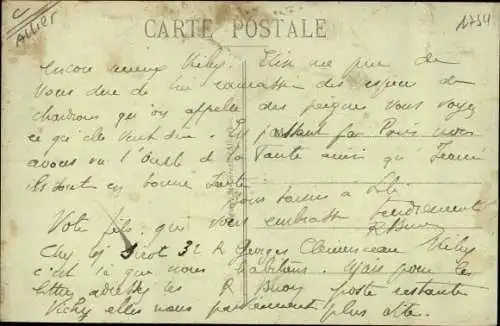 Allier
CARTE POSTALE
encore mieux Vichy. Elise me prie de
vous dire de lui ramasser des espèces de
chardons qu'on appelle des peignes vous voyez
ce qu'elle veut dire. En passant par Paris nous
avons vu l'oncle de la Tante ainsi qu'
ils sont en bonne santé
nous
Votre fils qui vous embrasse tendrement
R Buoy
Chez 32 R Georges Clemenceau Vichy
c'est là que nous habitons. Mais pour les
lettres adressez les R Buoy poste restante
Vichy elles nous parviennent plus vite.